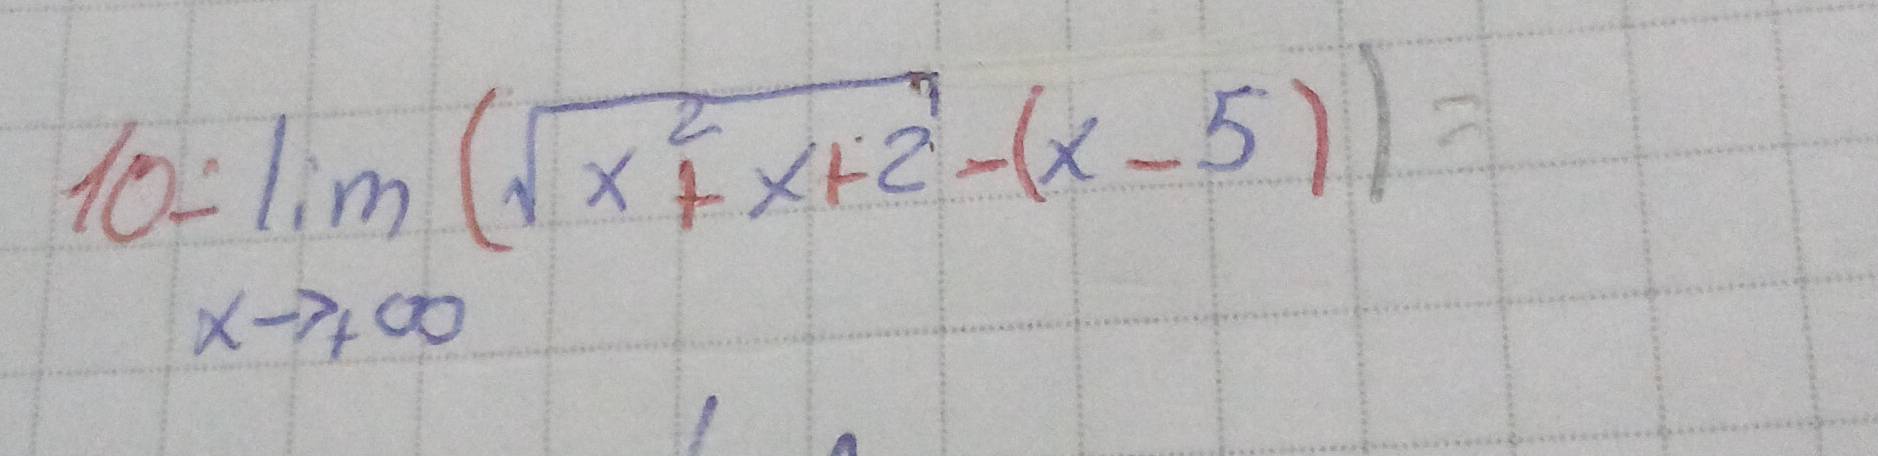 10- lim (√x²+x+2 -(x-5))=
x→+∞